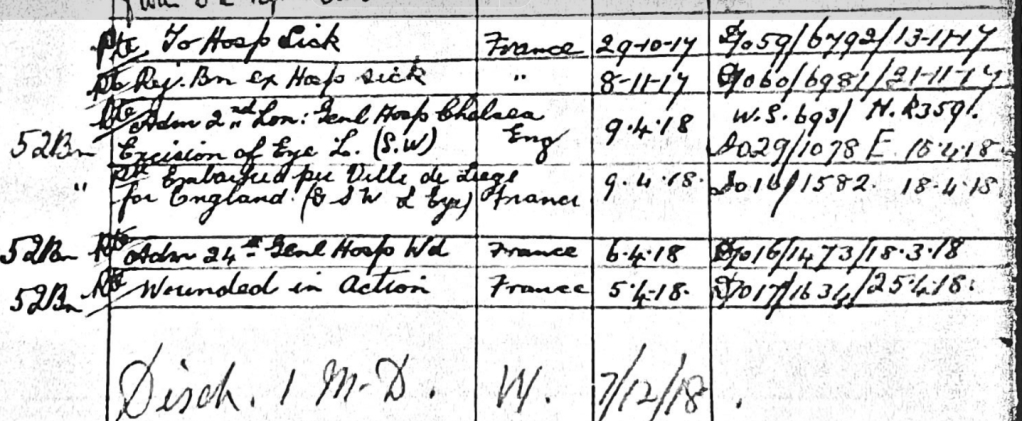 Pte To Hosp Sick France 29-10-17 Do59/6792/13-11-17
Pte Rej. Bn ex Hosp sick " 8-11-17 Do60/6981/21-11-17
Pte Adm 2nd Lon: Genl Hosp Chelsea W.S. 693/ H.R359/.
52Bn Excision of Eye L. (S.W) Eng 9.4.18 Do29/1078 E 18.4.18
" Pte Embarked per Ville de Liege 9.4.18. Do16/1582. 18.4.18
for England. (G S W L Eye) France
52Bn Pte Adm 24th Genl Hosp Wd France 6.4.18 Do16/1473/18.3.18
52Bn Pte Wounded in Action France 5.4.18. Do17/1634/25.4.18.
Disch. 1 M.D. W. 7/12/18.